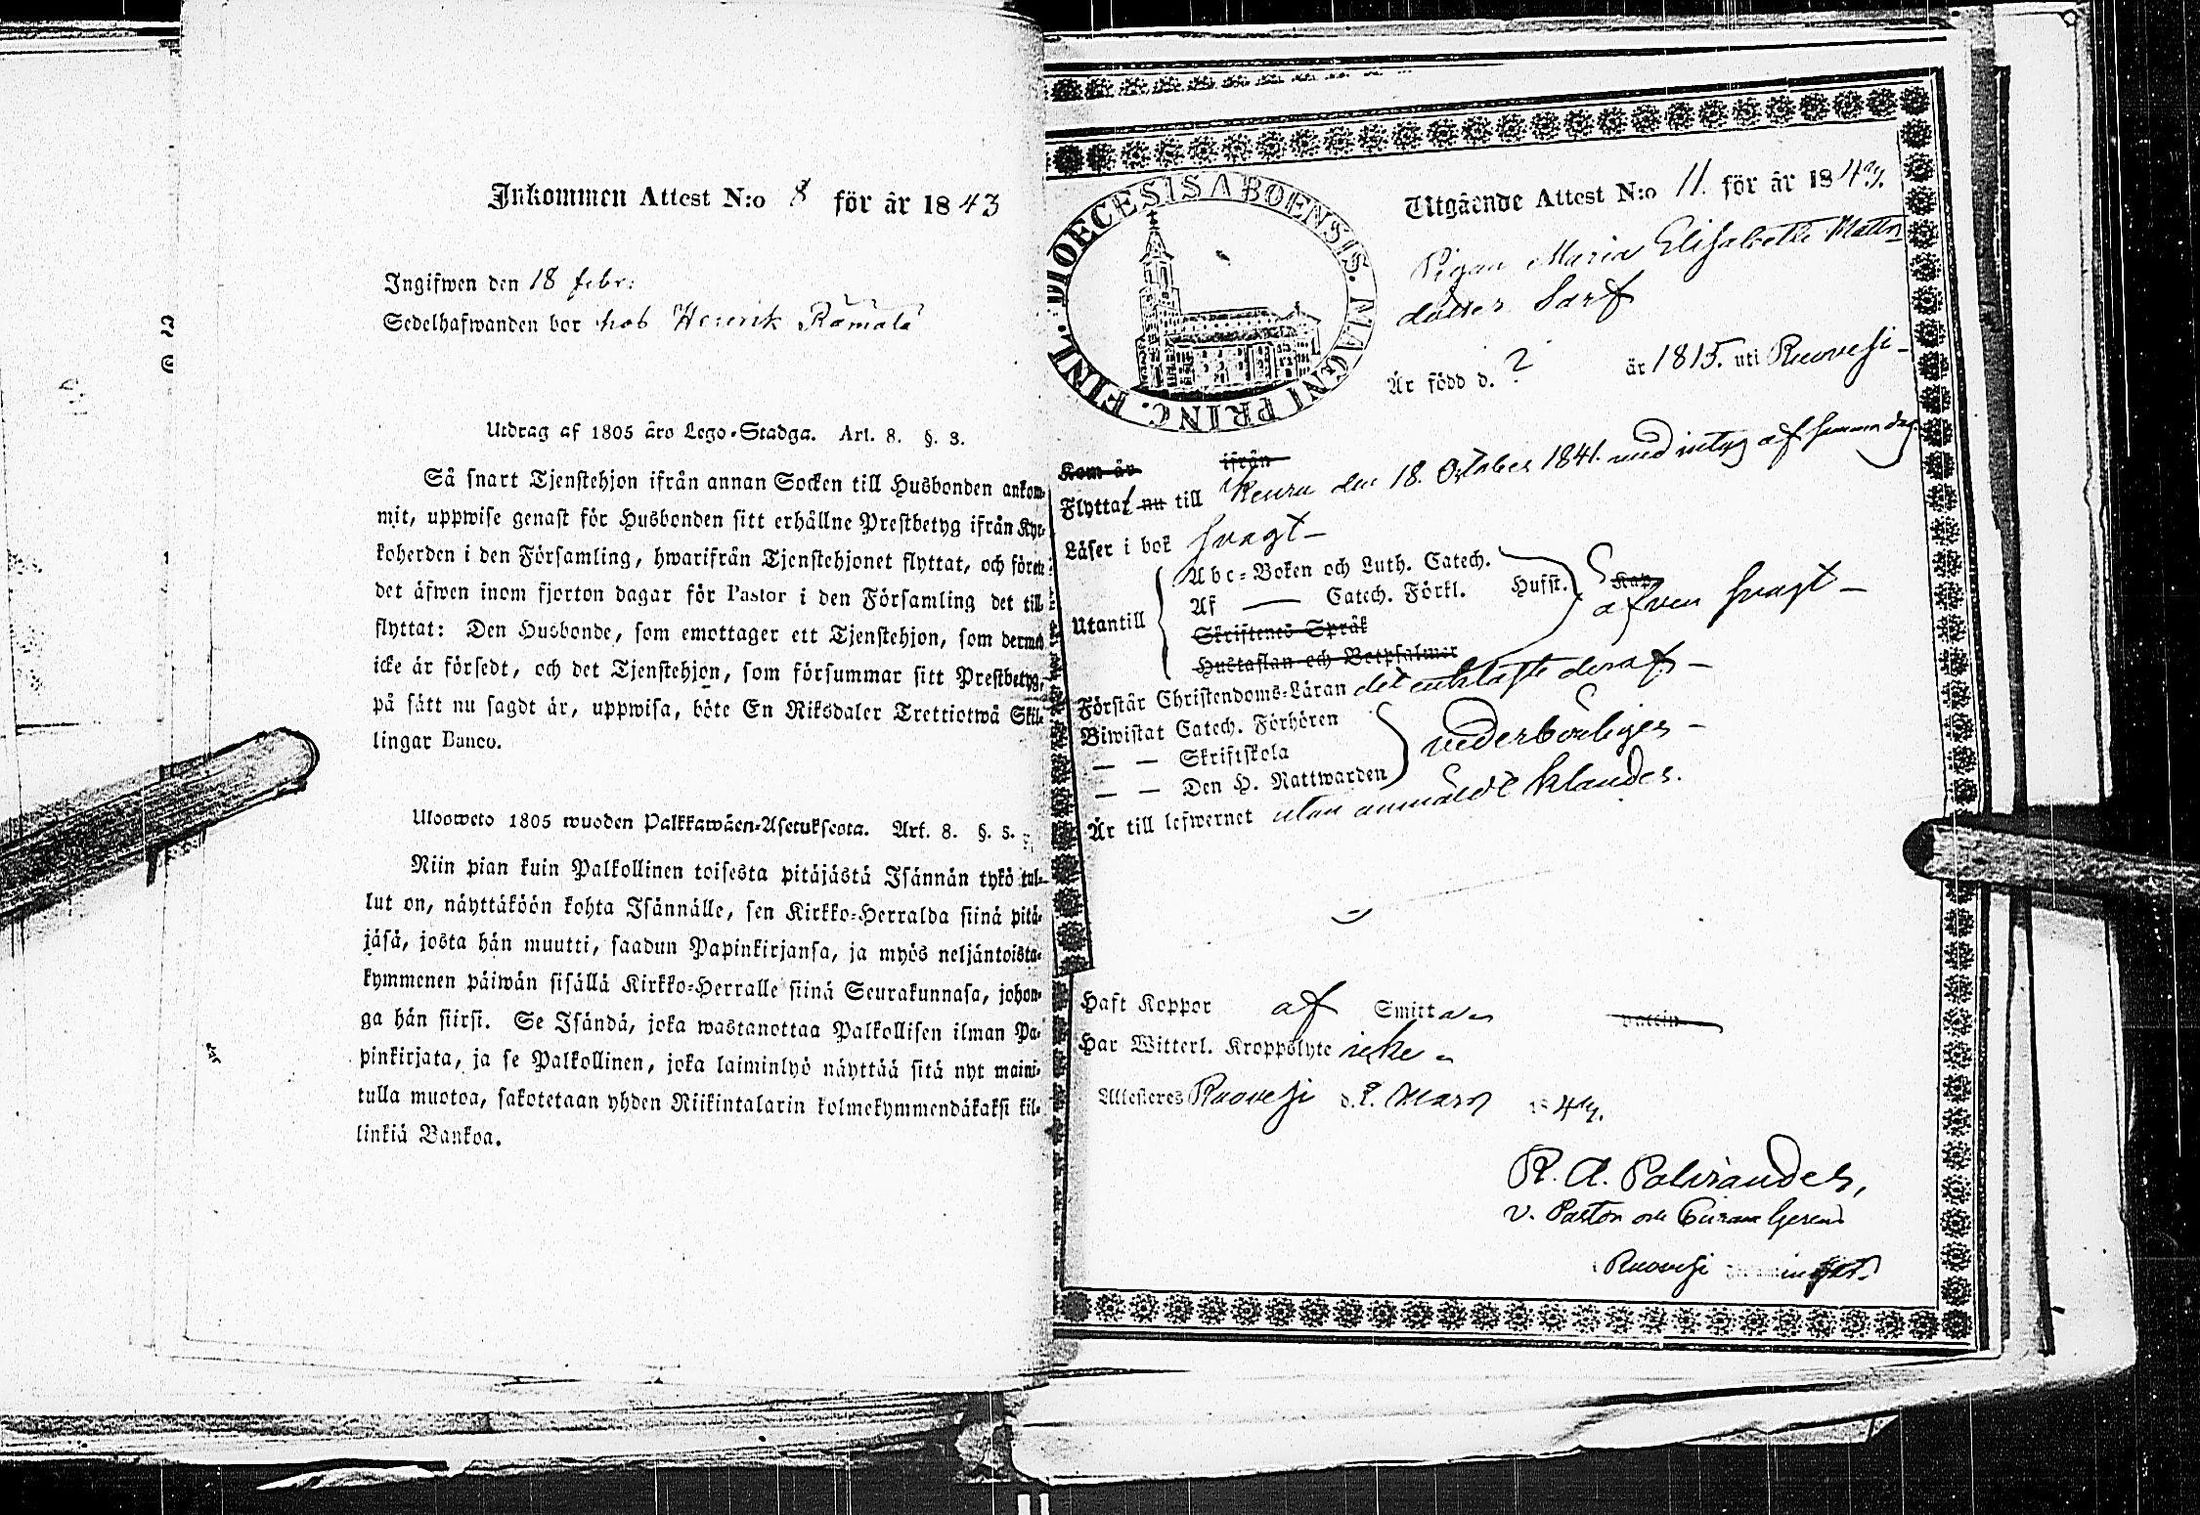 Inkommen Attest N:o 8 för år 1843
Ingifwen den 18 febr:
Sedelhafwanden bor hos Henrik Rämälä
Utdrag af 1805 års Lego-Stadga. Art. 8. §. 3.
Så snart Tjenstehjon ifrån annan Socken till Husbonden ankom-
mit, uppwise genast för Husbonden sitt erhållne Prestbetyg ifrån Kyr-
koherden i den Församling, hwarifrån Tjenstehjonet flyttat, och förete
det äfwen inom fjorton dagar för Pastor i den Församling det till-
flyttat: Den Husbonde, som emottager ett Tjenstehjon, som dermed
icke är försedt, och det Tjenstehjon, som försummar sitt Prestbetyg,
på sätt nu sagdt är, uppwisa, böte En Riksdaler Trettiotwå Skil-
lingar Banco.
Ulosweto 1805 wuoden Palkkawäen-Asetuksesta. Art. 8. §. 3.
Niin pian kuin Palkollinen toisesta pitäjästä Isännän tykö tul-
lut on, näyttäköön kohta Isännälle, sen Kirkko-Herralda siinä pitä-
jäsä, josta hän muutti, saadun Papinkirjansa, ja myös neljäntoista-
kymmenen päiwän sisällä Kirkko-Herralle siinä Seurakunnasa, johon-
ga hän siirsi. Se Isändä, joka wastanottaa Palkollisen ilman Pa-
pinkirjata, ja se Palkollinen, joka laiminlyö näyttää sitä nyt maini-
tulla muotoa, sakotetaan yhden Riikintalarin kolmekymmendäkaksi kil-
linkiä Bankoa.
DIOECESIS ABOENSIS. MAGNI PRINC. FINL.
Utgående Attest N:o 11. för år 184
Pigan Maria Elisabeth Matts
dotter Sarf
Är född d. ? år 1815. uti Ruovesi
Kom år ifrån
Flyttat nu till Keuru den 18. October 1841. med intyg af samma dag
Läser i bok svagt
Utantill
Abc-Boken och Luth. Catech.
Af — Catech. Förkl. Husst. Kap.
äfven svagt
Skriftenes Språk
Hustaflan och Botpsalmer
Förstår Christendoms-Läran det enklaste deraf
Biwistat Catech. Förhören
— — Skriftskola
— — Den H. Nattwarden
vederbörligen
Är till lefwernet utan anmäldt klander.
Haft Koppor af Smitta Vaccin
Har Witterl. Kroppslyte icke
Attesteres Ruovesi d. 8. Mars 184
R. A. Palvander,
v. Pastor och Curam Gerens
Ruovesi